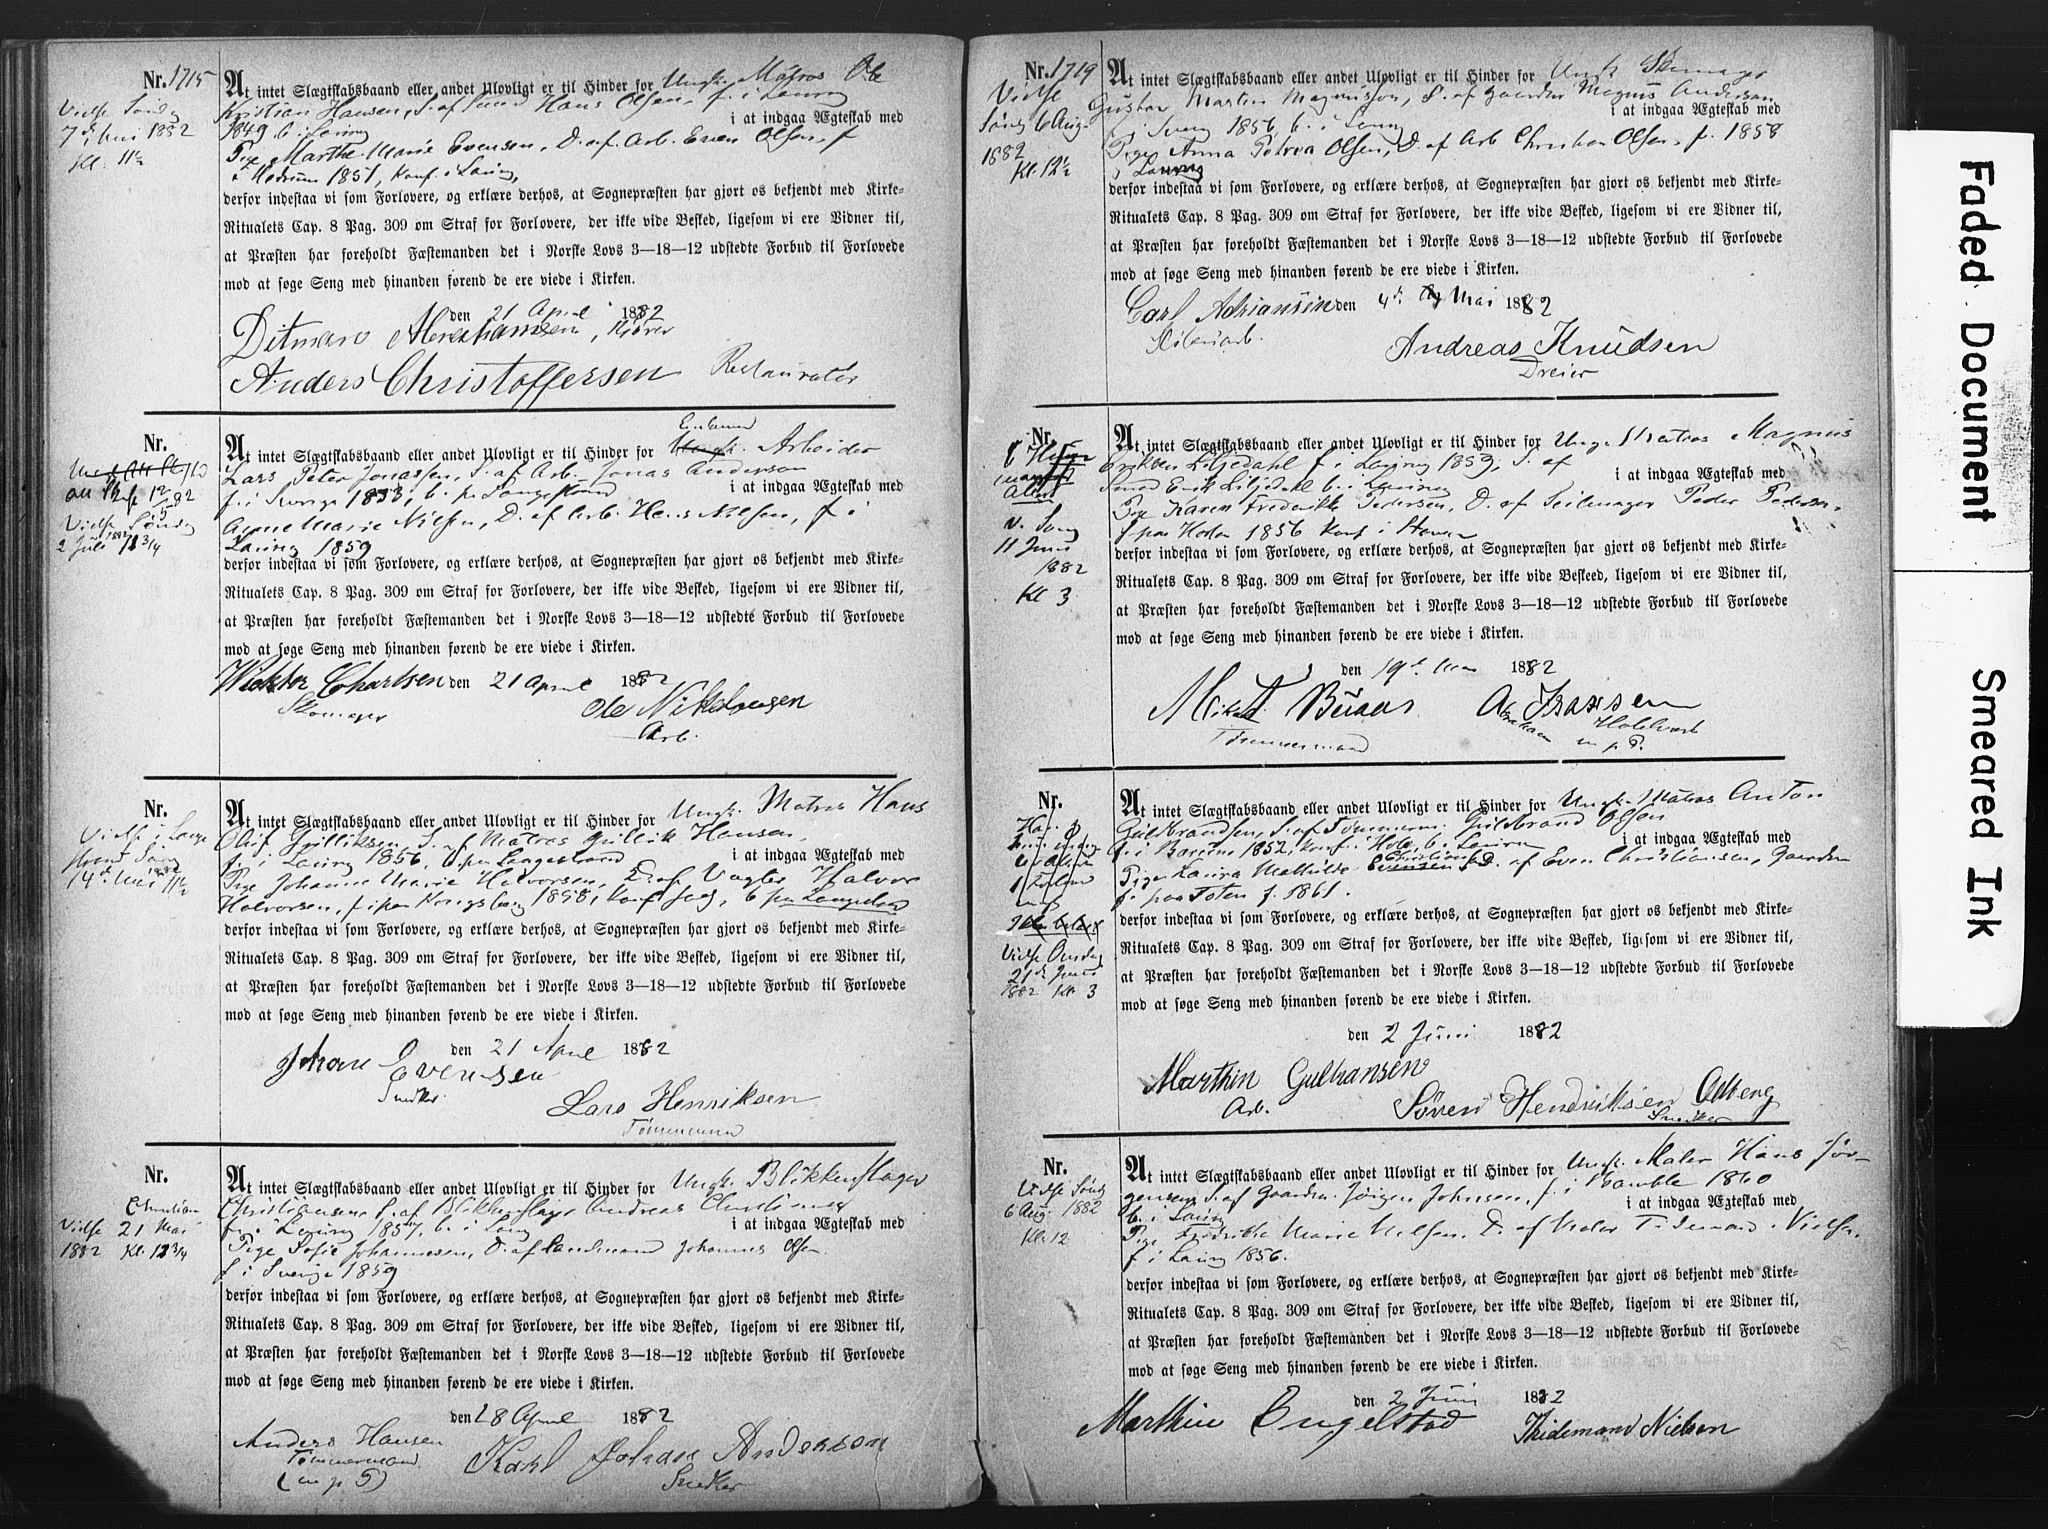 Nr. 1715
Vielse Søndg
7de Mai 1882
Kl. 11½
At intet Slægtskabsbaand eller andet Ulovligt er til Hinder for Ungk. Matros Ole
Kristian Hansen, S. af Hans Olsen, f. i Laurvig
1849 b. i Laurvig i at indgaa Ægteskab med
Pige Marthe Marie Evensen, D. af Arb. Even Olsen, f
i Hedrum 1851, konf. i Laurvig,
derfor indestaa vi som Forlovere, og erklære derhos, at Sognepræsten har gjort os bekjendt med Kirke-
Ritualets Cap. 8 Pag. 309 om Straf for Forlovere, der ikke vide Besked, ligesom vi ere Vidner til,
at Præsten har foreholdt Fæstemanden det i Norske Lovs 3—18—12 udstedte Forbud til Forlovede
mod at søge Seng med hinanden førend de ere viede i Kirken.
den 21 April 1882
Ditman Abrahamsen, Kjører
Anders Christoffersen Restauratør
Nr.
Vielse Søndg
2 Juli 1882
At intet Slægtskabsbaand eller andet Ulovligt er til Hinder for Enkemd Arbeider
Lars Peter Jonassen, S. af Arb. Jonas Anderson
f. i Sverige 1853, b. p. Langestrand i at indgaa Ægteskab med
Anne Marie Nilsen, D. af Arb. Hans Nilsen, f i
Laurvig 1859
derfor indestaa vi som Forlovere, og erklære derhos, at Sognepræsten har gjort os bekjendt med Kirke-
Ritualets Cap. 8 Pag. 309 om Straf for Forlovere, der ikke vide Besked, ligesom vi ere Vidner til,
at Præsten har foreholdt Fæstemanden det i Norske Lovs 3—18—12 udstedte Forbud til Forlovede
mod at søge Seng med hinanden førend de ere viede i Kirken.
Wicktor Charlsen den 21 April 1882
Skomager Ole Nikolaysen
Arb.
Nr.
Vielse i Lange
strand Søndg
14de Mai 11½
At intet Slægtskabsbaand eller andet Ulovligt er til Hinder for Ungk. Matros Hans
Oluf Gulliksen, S. af Matros Gullik Hansen,
f. i Laurvig 1856, b. paa Langestrand i at indgaa Ægteskab med
Pige Johanne Marie Halvorsen, D. af Vægter Halvor
Halvorsen, f. paa Kongsberg 1858, konf. b. paa Langestrand
derfor indestaa vi som Forlovere, og erklære derhos, at Sognepræsten har gjort os bekjendt med Kirke-
Ritualets Cap. 8 Pag. 309 om Straf for Forlovere, der ikke vide Besked, ligesom vi ere Vidner til,
at Præsten har foreholdt Fæstemanden det i Norske Lovs 3—18—12 udstedte Forbud til Forlovede
mod at søge Seng med hinanden førend de ere viede i Kirken.
Johan den 21 April 1882
Evensen
Snedker. Lars Henriksen
Tømmermand
Nr.
Christian
Vielse 21 Mai
1882 Kl. 12¾
At intet Slægtskabsbaand eller andet Ulovligt er til Hinder for Ungk. Blikkenslager
Christiansen, S. af Blikkenslager Andreas Christiansen
f. i Laurvig 1857, b. i Laurvig i at indgaa Ægteskab med
Pige Sofie Johannesen, D. af Landmand Johannes Olsen
f. i Sverige 1859
derfor indestaa vi som Forlovere, og erklære derhos, at Sognepræsten har gjort os bekjendt med Kirke-
Ritualets Cap. 8 Pag. 309 om Straf for Forlovere, der ikke vide Besked, ligesom vi ere Vidner til,
at Præsten har foreholdt Fæstemanden det i Norske Lovs 3—18—12 udstedte Forbud til Forlovede
mod at søge Seng med hinanden førend de ere viede i Kirken.
den 28 April 1882
Anders Hansen Karl Johan Anderson
Tømmermand Snedker
(m p P)
Nr. 1719
Vielse
Søndg 6 Aug.
1882
Kl. 12½
At intet Slægtskabsbaand eller andet Ulovligt er til Hinder for Ungk Skomager
Gustav Martin Magnusson, S. af Gaardm Magnus Anderson
f. i Sverig 1856, b. i Laurvig i at indgaa Ægteskab med
Pige Anna Petrea Olsen, D. af Arb Christian Olsen, f. 1858
i Laurvig
derfor indestaa vi som Forlovere, og erklære derhos, at Sognepræsten har gjort os bekjendt med Kirke-
Ritualets Cap. 8 Pag. 309 om Straf for Forlovere, der ikke vide Besked, ligesom vi ere Vidner til,
at Præsten har foreholdt Fæstemanden det i Norske Lovs 3—18—12 udstedte Forbud til Forlovede
mod at søge Seng med hinanden førend de ere viede i Kirken.
Carl Adriansin den 4de Mai 1882
Andreas Knudsen
Dreier
Nr.
11 Juni
1882
Kl 3
At intet Slægtskabsbaand eller andet Ulovligt er til Hinder for Ungk. Matros Magnus
Eriksen Liljedahl f. i Laurvig 1859, S. af
Smed Erik Liljedahl b. i Laurvig i at indgaa Ægteskab med
Pige Karen Frederikke Pedersen, D. af Seilmager Peder Pedersen,
1856
derfor indestaa vi som Forlovere, og erklære derhos, at Sognepræsten har gjort os bekjendt med Kirke-
Ritualets Cap. 8 Pag. 309 om Straf for Forlovere, der ikke vide Beskeed, ligesom vi ere Vidner til,
at Præsten har foreholdt Fæstemanden det i Norske Lovs 3—18—12 udstedte Forbud til Forlovede
mod at søge Seng med hinanden førend de ere viede i Kirken.
den 19de Mai 1882
Buaas A Isaksen
Tømmermand m p P.
Nr.
Vielse Onsdag
21de Juni
1882 Kl. 3
At intet Slægtskabsbaand eller andet Ulovligt er til Hinder for Ungk. Matros Anton
Gulbrandsen, S. af Tømmerm. Gulbrand Olsen
f. i Bærum 1852, konf. i Hole, b. i Laurvig i at indgaa Ægteskab med
Pige Laura Mathilde Evensen Christiansen, D. af Even Christiansen, Gaardm
f. paa Toten f. 1861.
derfor indestaa vi som Forlovere, og erklære derhos, at Sognepræsten har gjort os bekjendt med Kirke-
Ritualets Cap. 8 Pag. 309 om Straf for Forlovere, der ikke vide Besked, ligesom vi ere Vidner til,
at Præsten har foreholdt Fæstemanden det i Norske Lovs 3—18—12 udstedte Forbud til Forlovede
mod at søge Seng med hinanden førend de ere viede i Kirken.
den 2 Juni 1882
Marthin Gulhansen
Arb. Sören Hendriksen Odberg
Snedker
Nr.
Vielse Søndg
6 Aug. 1882
Kl. 12
At intet Slægtskabsbaand eller andet Ulovligt er til Hinder for Ungk. Maler Hans Jør-
gensen, S. af Gaardm. Jørgen Johnsen, f. i Bamble 1860
b. i Laurvig i at indgaa Ægteskab med
Pige Fredrikke Marie Nilsen, D. af Maler Tidemand Nielsen,
f. i Laurvig 1856.
derfor indestaa vi som Forlovere, og erklære derhos, at Sognepræsten har gjort os bekjendt med Kirke-
Ritualets Cap. 8 Pag. 309 om Straf for Forlovere, der ikke vide Besked, ligesom vi ere Vidner til,
at Præsten har foreholdt Fæstemanden det i Norske Lovs 3—18—12 udstedte Forbud til Forlovede
mod at søge Seng med hinanden førend de ere viede i Kirken.
den 2 Juni 1882
Marthin Engelstad Thidemand Nielsen
Faded Document
Smeared Ink